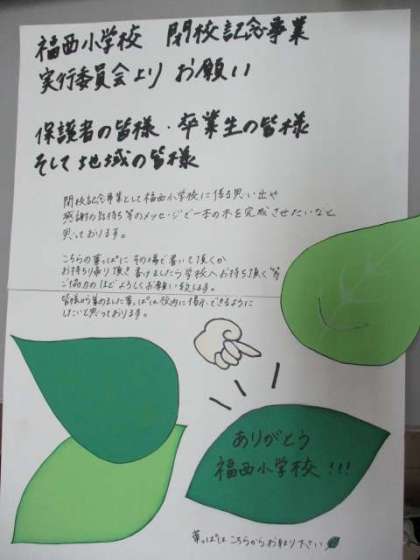 福西小学校 閉校記念事業
実行委員会より お願い
保護者の皆様・卒業生の皆様
そして地域の皆様
閉校記念事業として福西小学校に係る思い出や
感謝の気持ち等のメッセージで一本の木を完成させたいなと
思っております。
こちらの葉っぱに その場で書いて頂くか
お持ち帰り頂き 書けましたら学校へお持ち頂く等
ご協力のほどよろしくお願い致します。
皆様から集めました葉っぱは校内に掲示できるように
したいと思っております。
ありがとう
福西小学校!!!
葉っぱは こちらからお取り下さい